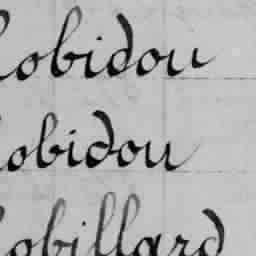 Robidou
Robidou
Robillard